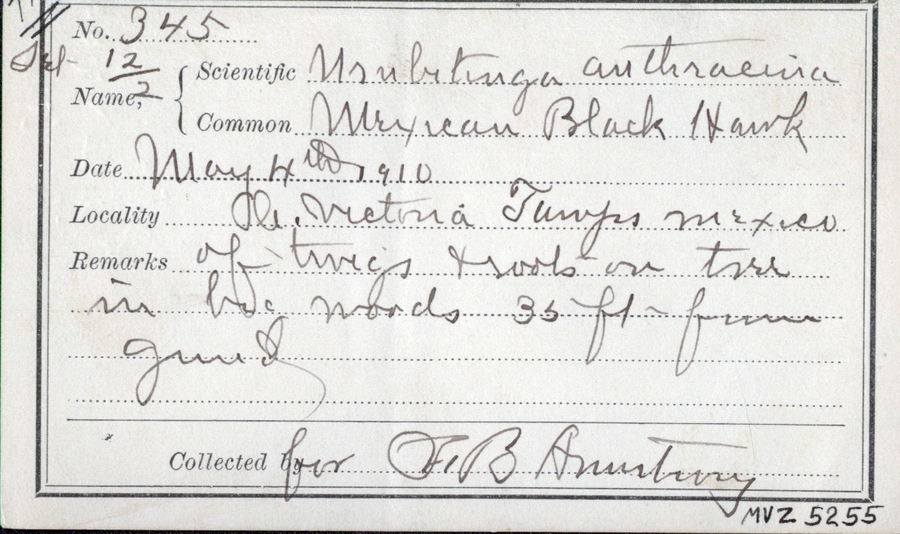 No. 345
Set 12/2
Name, Scientific Urubitinga anthracina
Common Mexican Black Hawk
Date May 4th 1910
Locality Victoria Tamps Mexico
Remarks of twigs & roots on tree
in woods 35 ft from
grund
Collected by for F. B. Armstrong
MVZ 5255